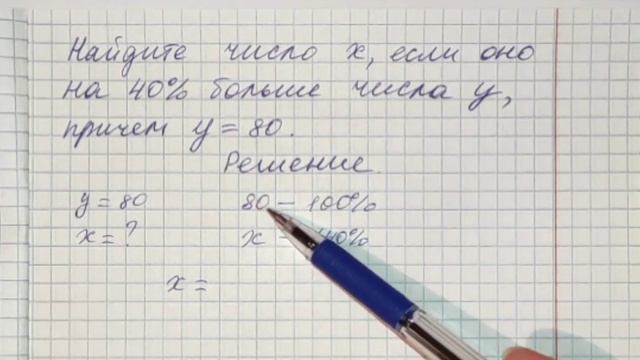 Найдите число x, если оно
на 40% больше числа y,
причем y = 80.
Решение.
y = 80 80 — 100%
x = ? x 40%
x =